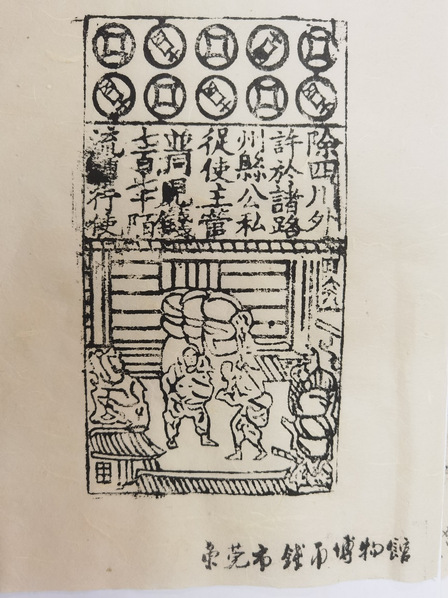 除四川外
許於諸路
州縣公私
從便主管
並同見錢
七百七十陌
流轉行使
東莞市錢币博物館